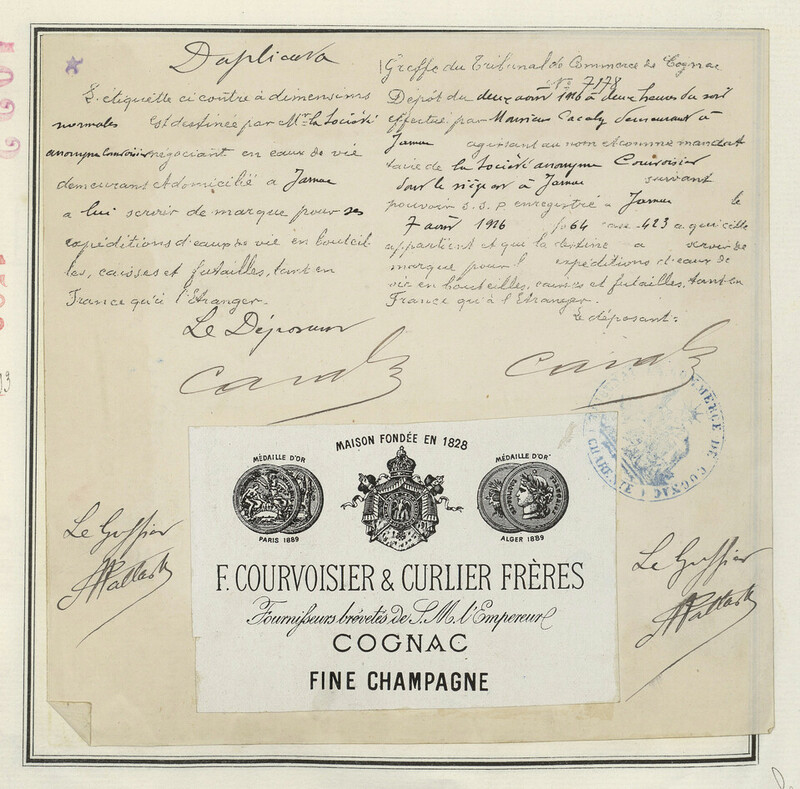 Duplicata
L'étiquette ci contre à dimensions
normales est destinée par Mr. la Société
anonyme Courvoisier négociant en eaux de vie
demeurant et domicilié a Jarnac
a lui servir de marque pour ses
expéditions d'eaux de vie en bouteil
les, caisses et futailles, tant en
France qu'à l'Etranger.
Le Déposant
Greffe du Tribunal de Commerce de Cognac
No 7178
Dépôt du deux avril 1916 à deux heures du soir
effectué par Monsieur demeurant à
Jarnac agissant au nom et comme manda
taire de la Société anonyme Courvoisier
dont le siège est à Jarnac suivant
pouvoir S.S.P enregistré à Jarnac le
7 avril 1916 fo 64 case 423 a qui elle
appartient et qui la destine a servir de
marque pour l expéditions d'eaux de
vie en bouteilles, caisses et futailles, tant en
France qu'à l'Etranger.
Le déposant:
COMMERCE DE COGNAC
CHARENTE
MAISON FONDÉE EN 1828
MÉDAILLE D'OR
PARIS 1889
MÉDAILLE D'OR
ALGER 1889
F. COURVOISIER & CURLIER FRÈRES
Fournisseurs brévetés de S.M. l'Empereur
COGNAC
FINE CHAMPAGNE
Le Greffier
Le Greffier